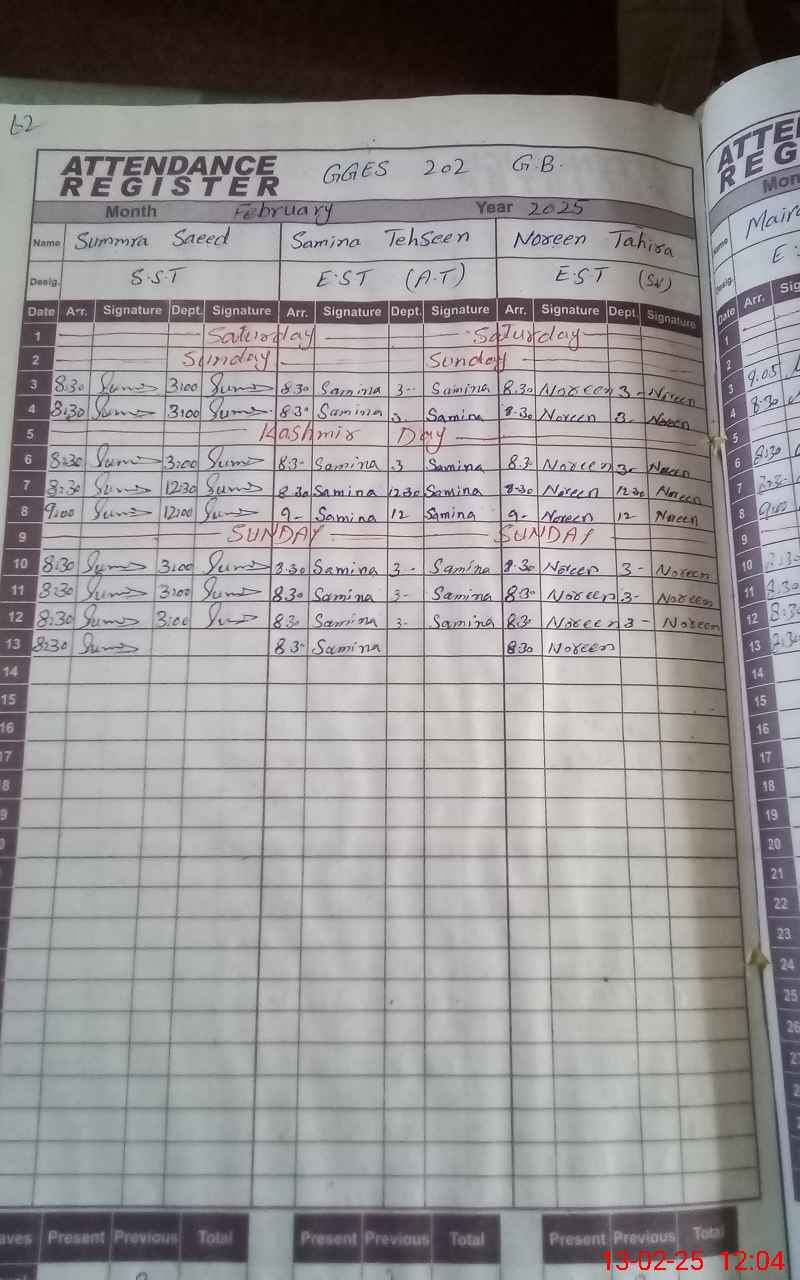 62
ATTENDANCE REGISTER GGES 202 G.B.
Month February Year 2025
Name Summra Saeed Samina Tehseen Noreen Tahira
Desig. S.S.T E.S.T (A.T) E.S.T (SV)
Date Arr. Signature Dept. Signature Arr. Signature Dept. Signature Arr. Signature Dept. Signature
1 Saturday Saturday
2 Sunday Sunday
3 8:30 3:00 8.30 Samina 3- Samina 8.30 Noreen 3- Noreen
4 8:30 3:00 8.3- Samina 3. Samina 8.30 Noreen 3- Noreen
5 Kashmir Day
6 8:30 3:00 8.3- Samina .3 Samina 8.3- Noreen 3- Noreen
7 8:30 12:30 8.30 Samina 12.30 Samina 8.30 Noreen 12.30 Noreen
8 9:00 12:00 9- Samina 12 Samina 9- Noreen 12- Noreen
9 SUNDAY SUNDAY
10 8:30 3:00 8.30 Samina 3- Samina 8.30 Noreen 3- Noreen
11 8:30 3:00 8.30 Samina 3- Samina 8.30 Noreen 3- Noreen
12 8:30 3:00 8.30 Samina 3- Samina 8.30 Noreen 3- Noreen
13 8:30 8.3- Samina 8.30 Noreen
14
15
16
17
8
9
0
Present Previous Total Present Previous Total Present Previous Total
ATTE
REG
Mon
Name Maira
Desig. E
Date Arr. Sig
1
2
3 9.05
4 8:30
5
6 8:30
7
8 9:00
9
10 8:30
11 8:30
12 8:30
13 8:30
14
15
16
17
18
19
20
21
22
23
24
25
26
27
13-02-25 12:04